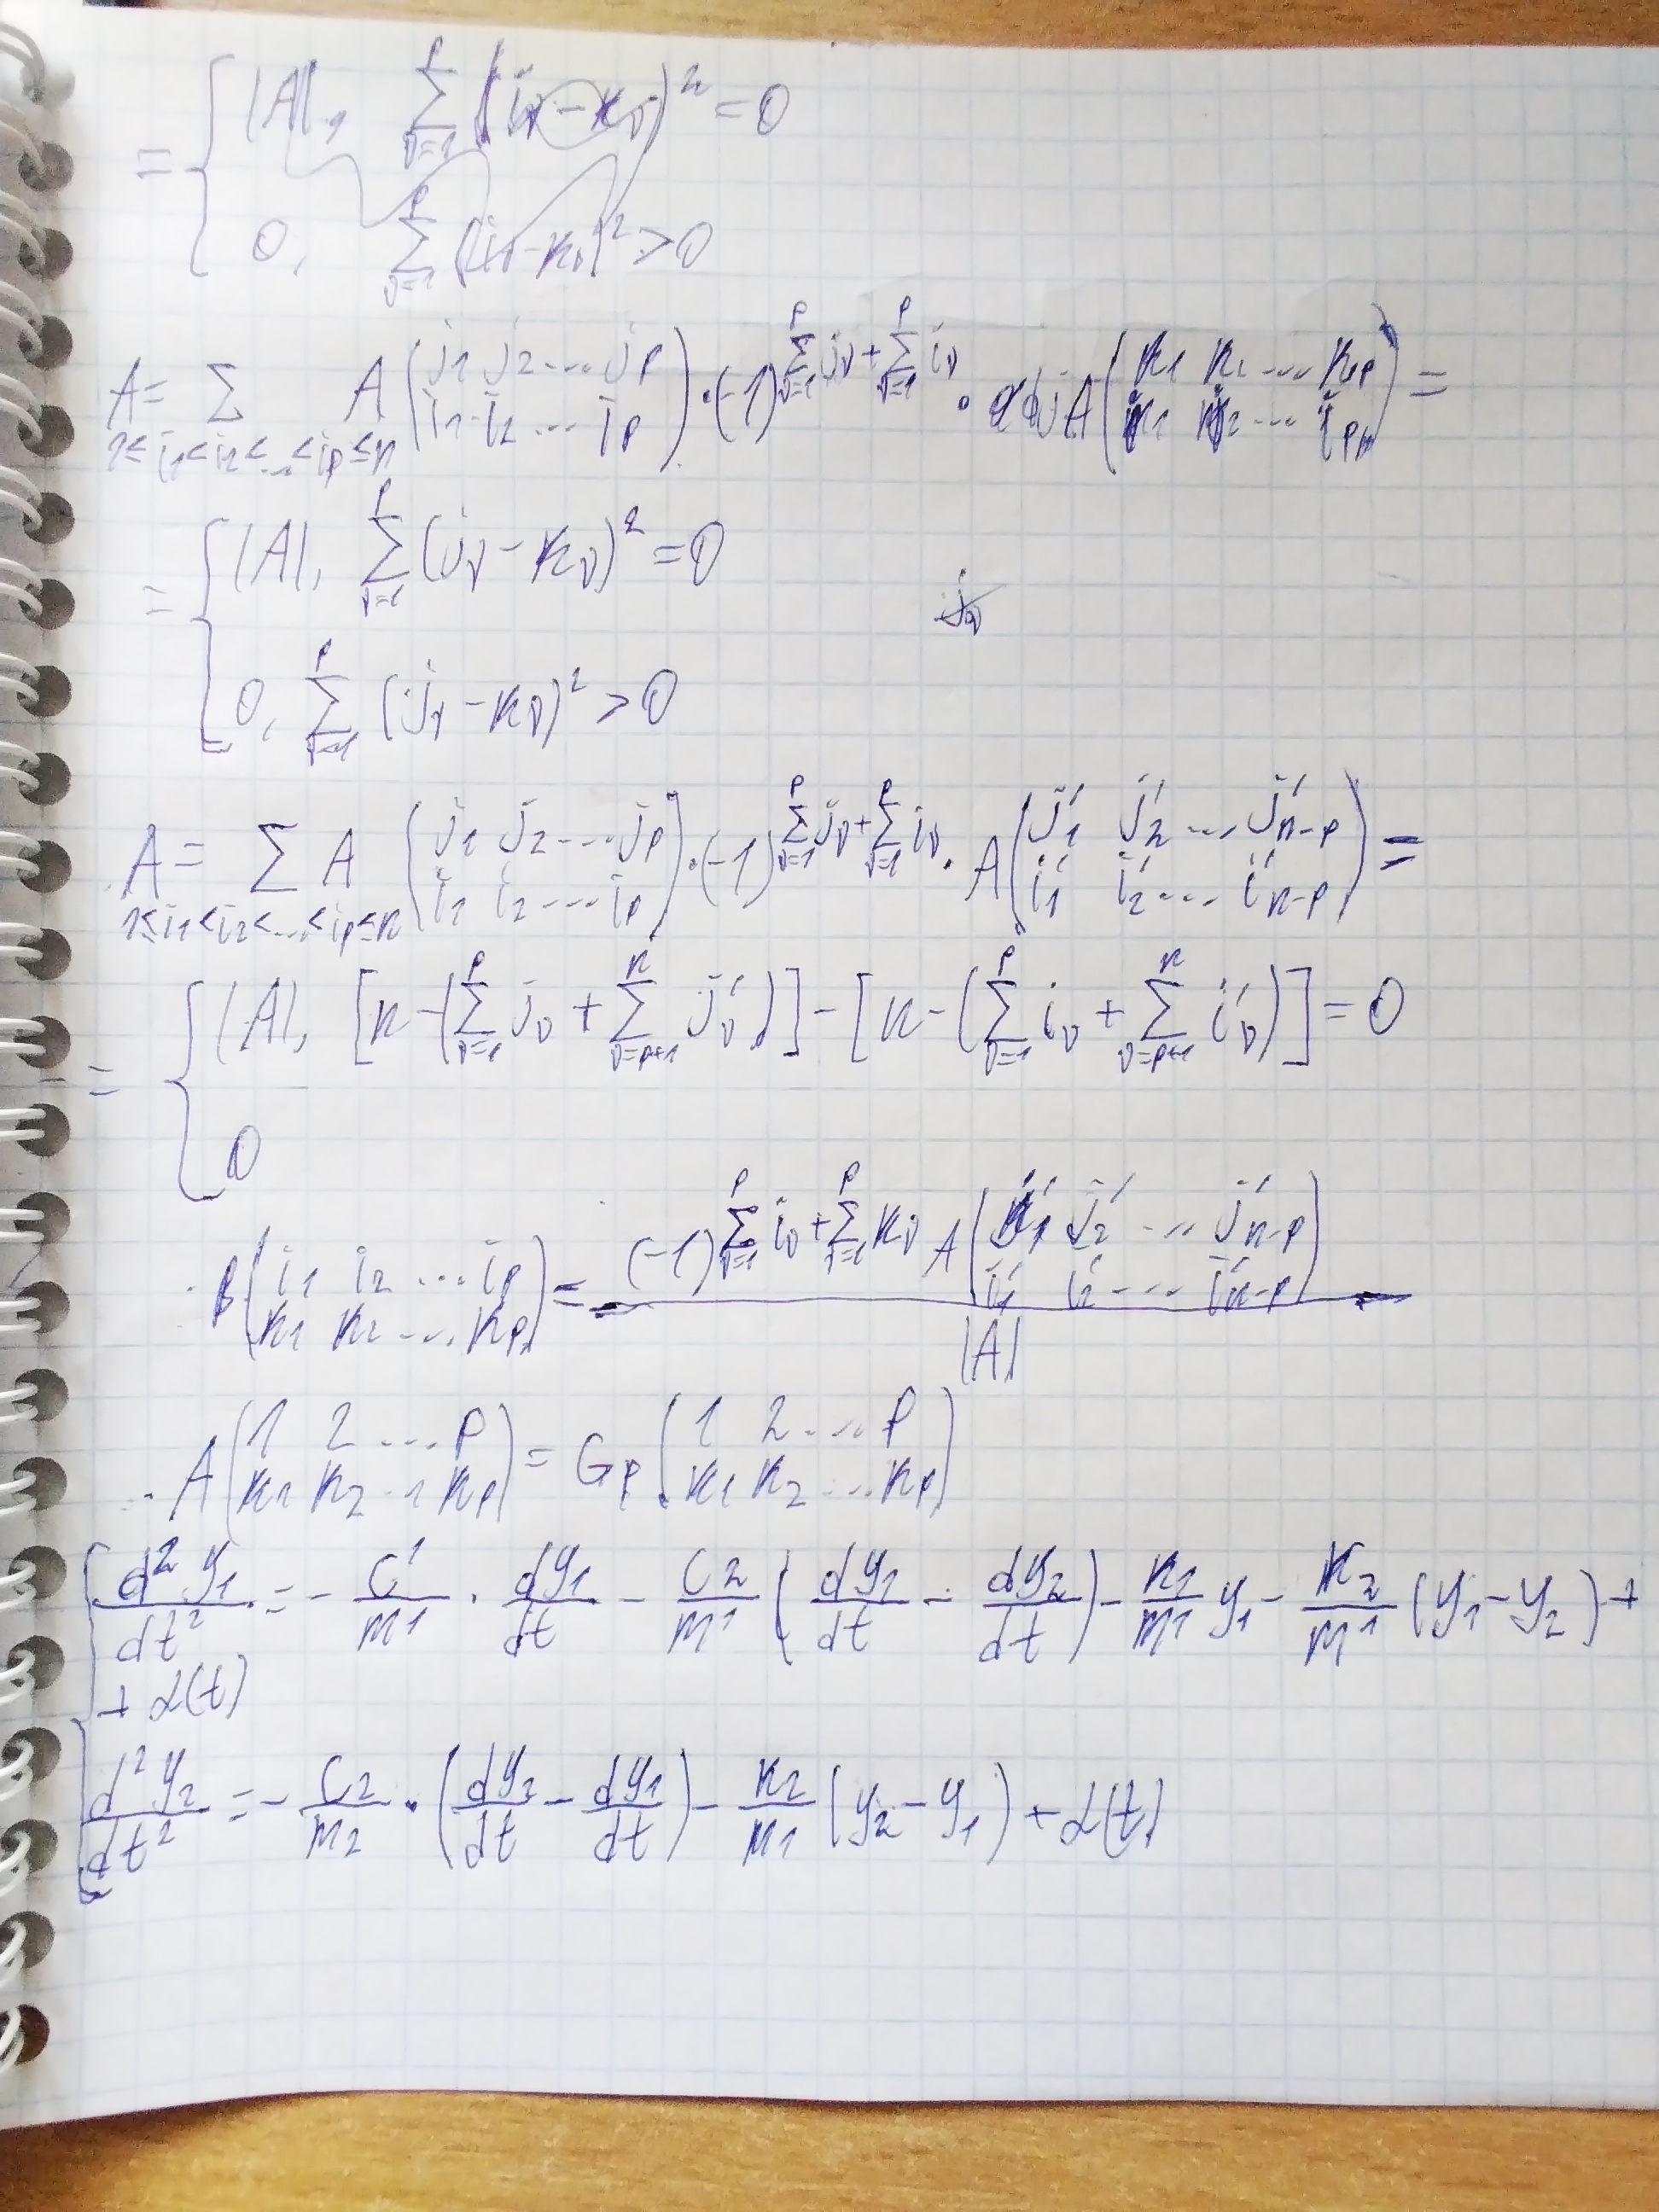 = { |A|, \sum_{ν=1}^{p} (i_ν - k_ν)^2 = 0
0, \sum_{ν=1}^{p} (i_ν - k_ν)^2 > 0
A = \sum_{1≤i_1<i_2<...<i_p≤n} A \begin{pmatrix} j_1 & j_2 & ... & j_p \\ i_1 & i_2 & ... & i_p \end{pmatrix} · (-1)^{\sum_{ν=1}^{p} j_ν + \sum_{ν=1}^{p} i_ν} · adj A \begin{pmatrix} k_1 & k_2 & ... & k_p \\ i_1 & i_2 & ... & i_p \end{pmatrix} =
= { |A|, \sum_{ν=1}^{p} (j_ν - k_ν)^2 = 0
0, \sum_{ν=1}^{p} (j_ν - k_ν)^2 > 0
A = \sum_{1≤i_1<i_2<...<i_p≤n} A \begin{pmatrix} j_1 & j_2 & ... & j_p \\ i_1 & i_2 & ... & i_p \end{pmatrix} · (-1)^{\sum_{ν=1}^{p} j_ν + \sum_{ν=1}^{p} i_ν} · A \begin{pmatrix} j'_1 & j'_2 & ... & j'_{n-p} \\ i'_1 & i'_2 & ... & i'_{n-p} \end{pmatrix} =
= { |A|, [n - (\sum_{ν=1}^{p} j_ν + \sum_{ν=p+1}^{n} j'_ν)] - [n - (\sum_{ν=1}^{p} i_ν + \sum_{ν=p+1}^{n} i'_ν)] = 0
0
B \begin{pmatrix} i_1 & i_2 & ... & i_p \\ k_1 & k_2 & ... & k_p \end{pmatrix} = \frac{(-1)^{\sum_{ν=1}^{p} i_ν + \sum_{ν=1}^{p} k_ν} A \begin{pmatrix} j'_1 & j'_2 & ... & j'_{n-p} \\ i'_1 & i'_2 & ... & i'_{n-p} \end{pmatrix}}{|A|}
A \begin{pmatrix} 1 & 2 & ... & p \\ k_1 & k_2 & ... & k_p \end{pmatrix} = G_p \begin{pmatrix} 1 & 2 & ... & p \\ k_1 & k_2 & ... & k_p \end{pmatrix}
{ \frac{d^2 y_1}{dt^2} = - \frac{c1}{m1} · \frac{dy_1}{dt} - \frac{c2}{m1} (\frac{dy_1}{dt} - \frac{dy_2}{dt}) - \frac{k_1}{m1} y_1 - \frac{k_2}{m1} (y_1 - y_2) +
+ α(t)
\frac{d^2 y_2}{dt^2} = - \frac{c2}{m2} · (\frac{dy_2}{dt} - \frac{dy_1}{dt}) - \frac{k_2}{m_1} (y_2 - y_1) + α(t)